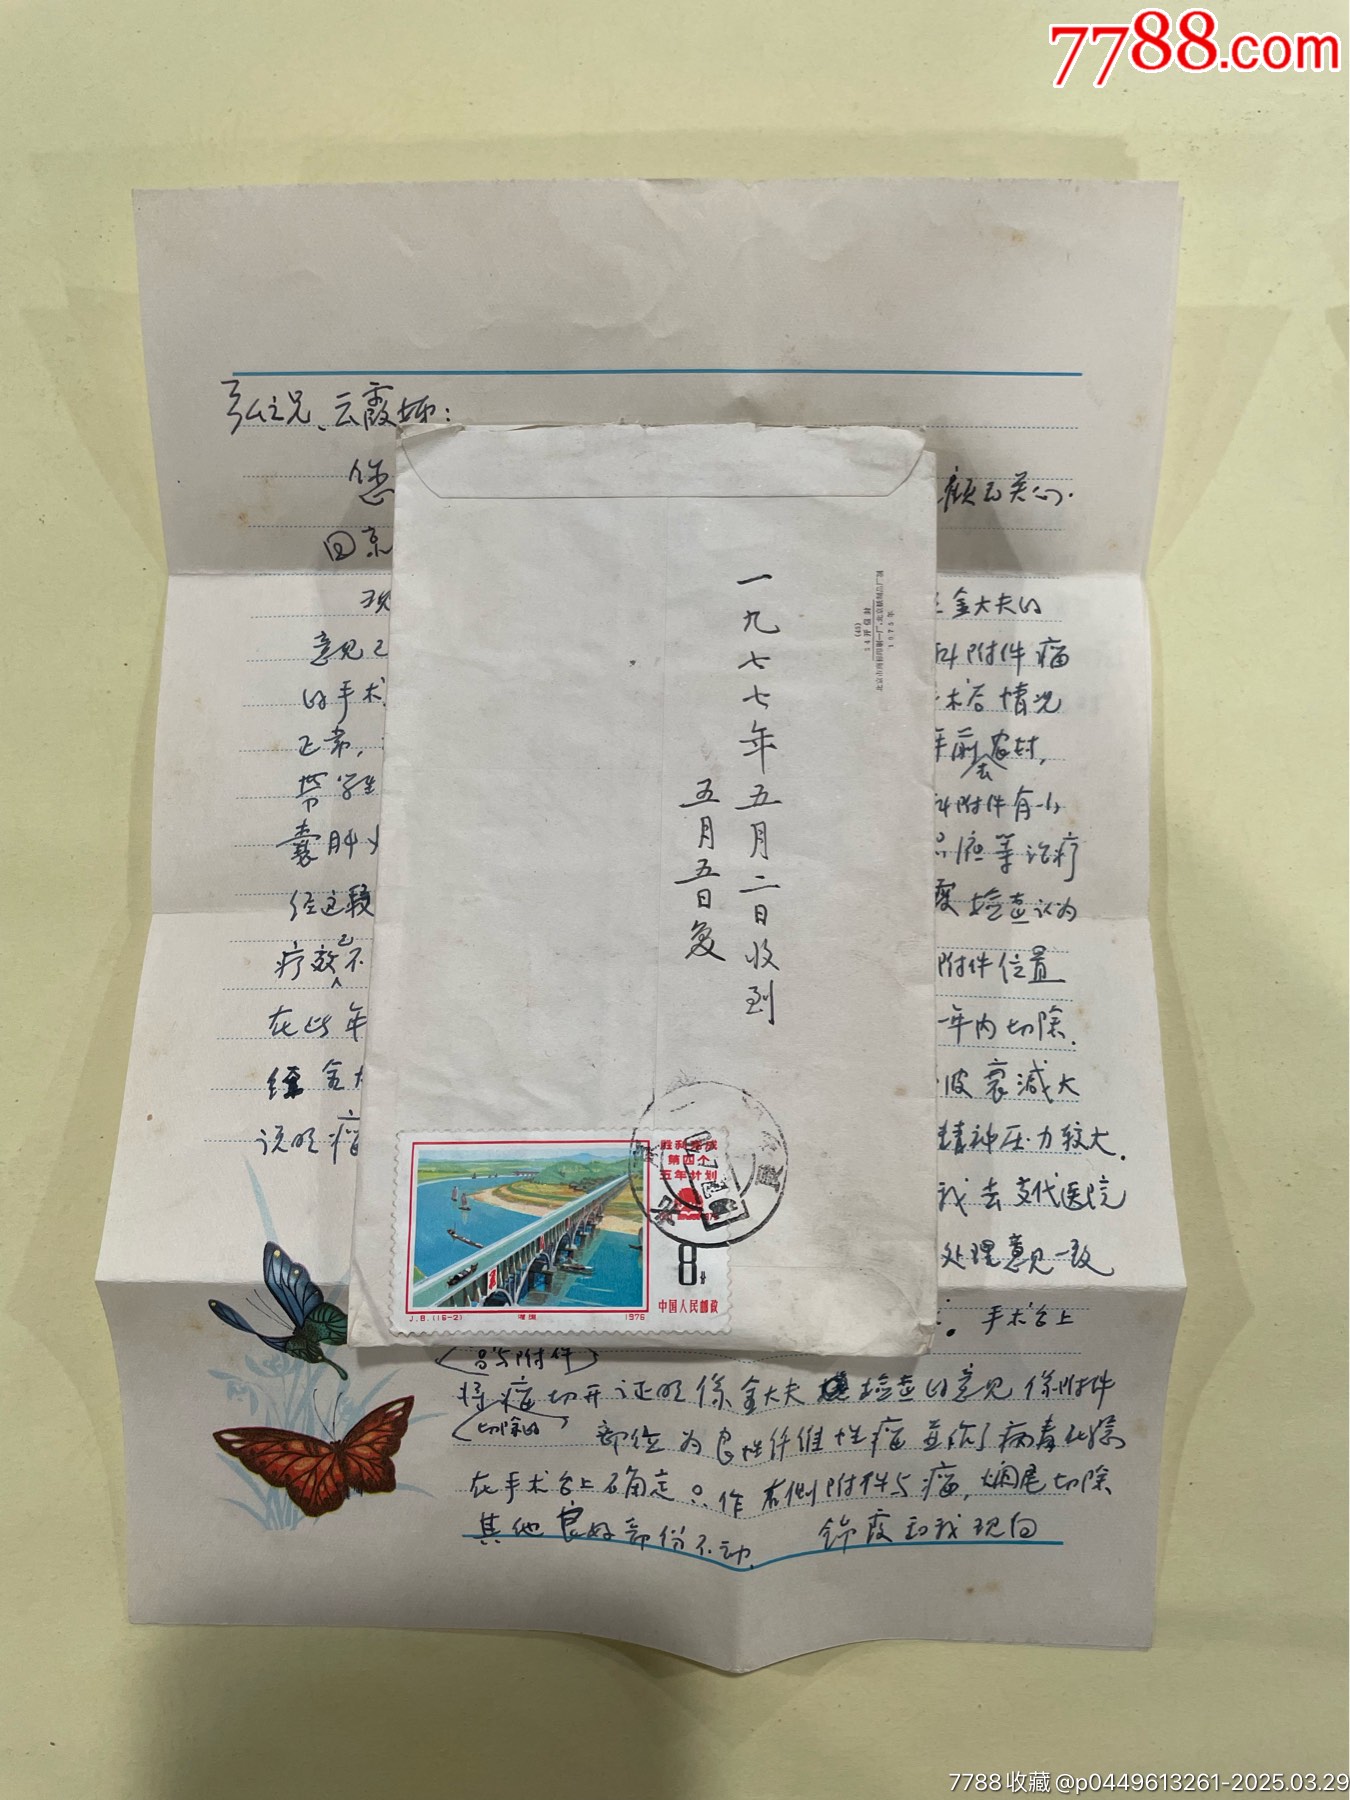 7788.com
弘之兄、云霞姊：
您 顾与关心.
回京
现 金大夫的
意见已 附件瘤
的手术 术后情况
正常， 年前去农村，
带学生 附件有小
囊肿 等治疗
经这段 检查认为
疗效已不 附件位置
在此年 一年内切除.
经金大 波衰减大
说明瘤 精神压力较大.
我去支代医院
处理意见一致
手术台上
另与附件
将瘤切开证明係金大夫检查的意见係附件
切除的
部位为良性纤维性瘤並作了病毒化验
在手术台上确定只作右侧附件与瘤，阑尾切除
其他良好部份不动. 锦霞和我现向
一九七七年五月二日收到
五月五日复
(43)
54开信封
1975年
胜利完成
第四个
五年计划
8分
中国人民邮政
J.8.(16-2)
灌溉
1976
北京
7788收藏@p0449613261-2025.03.29